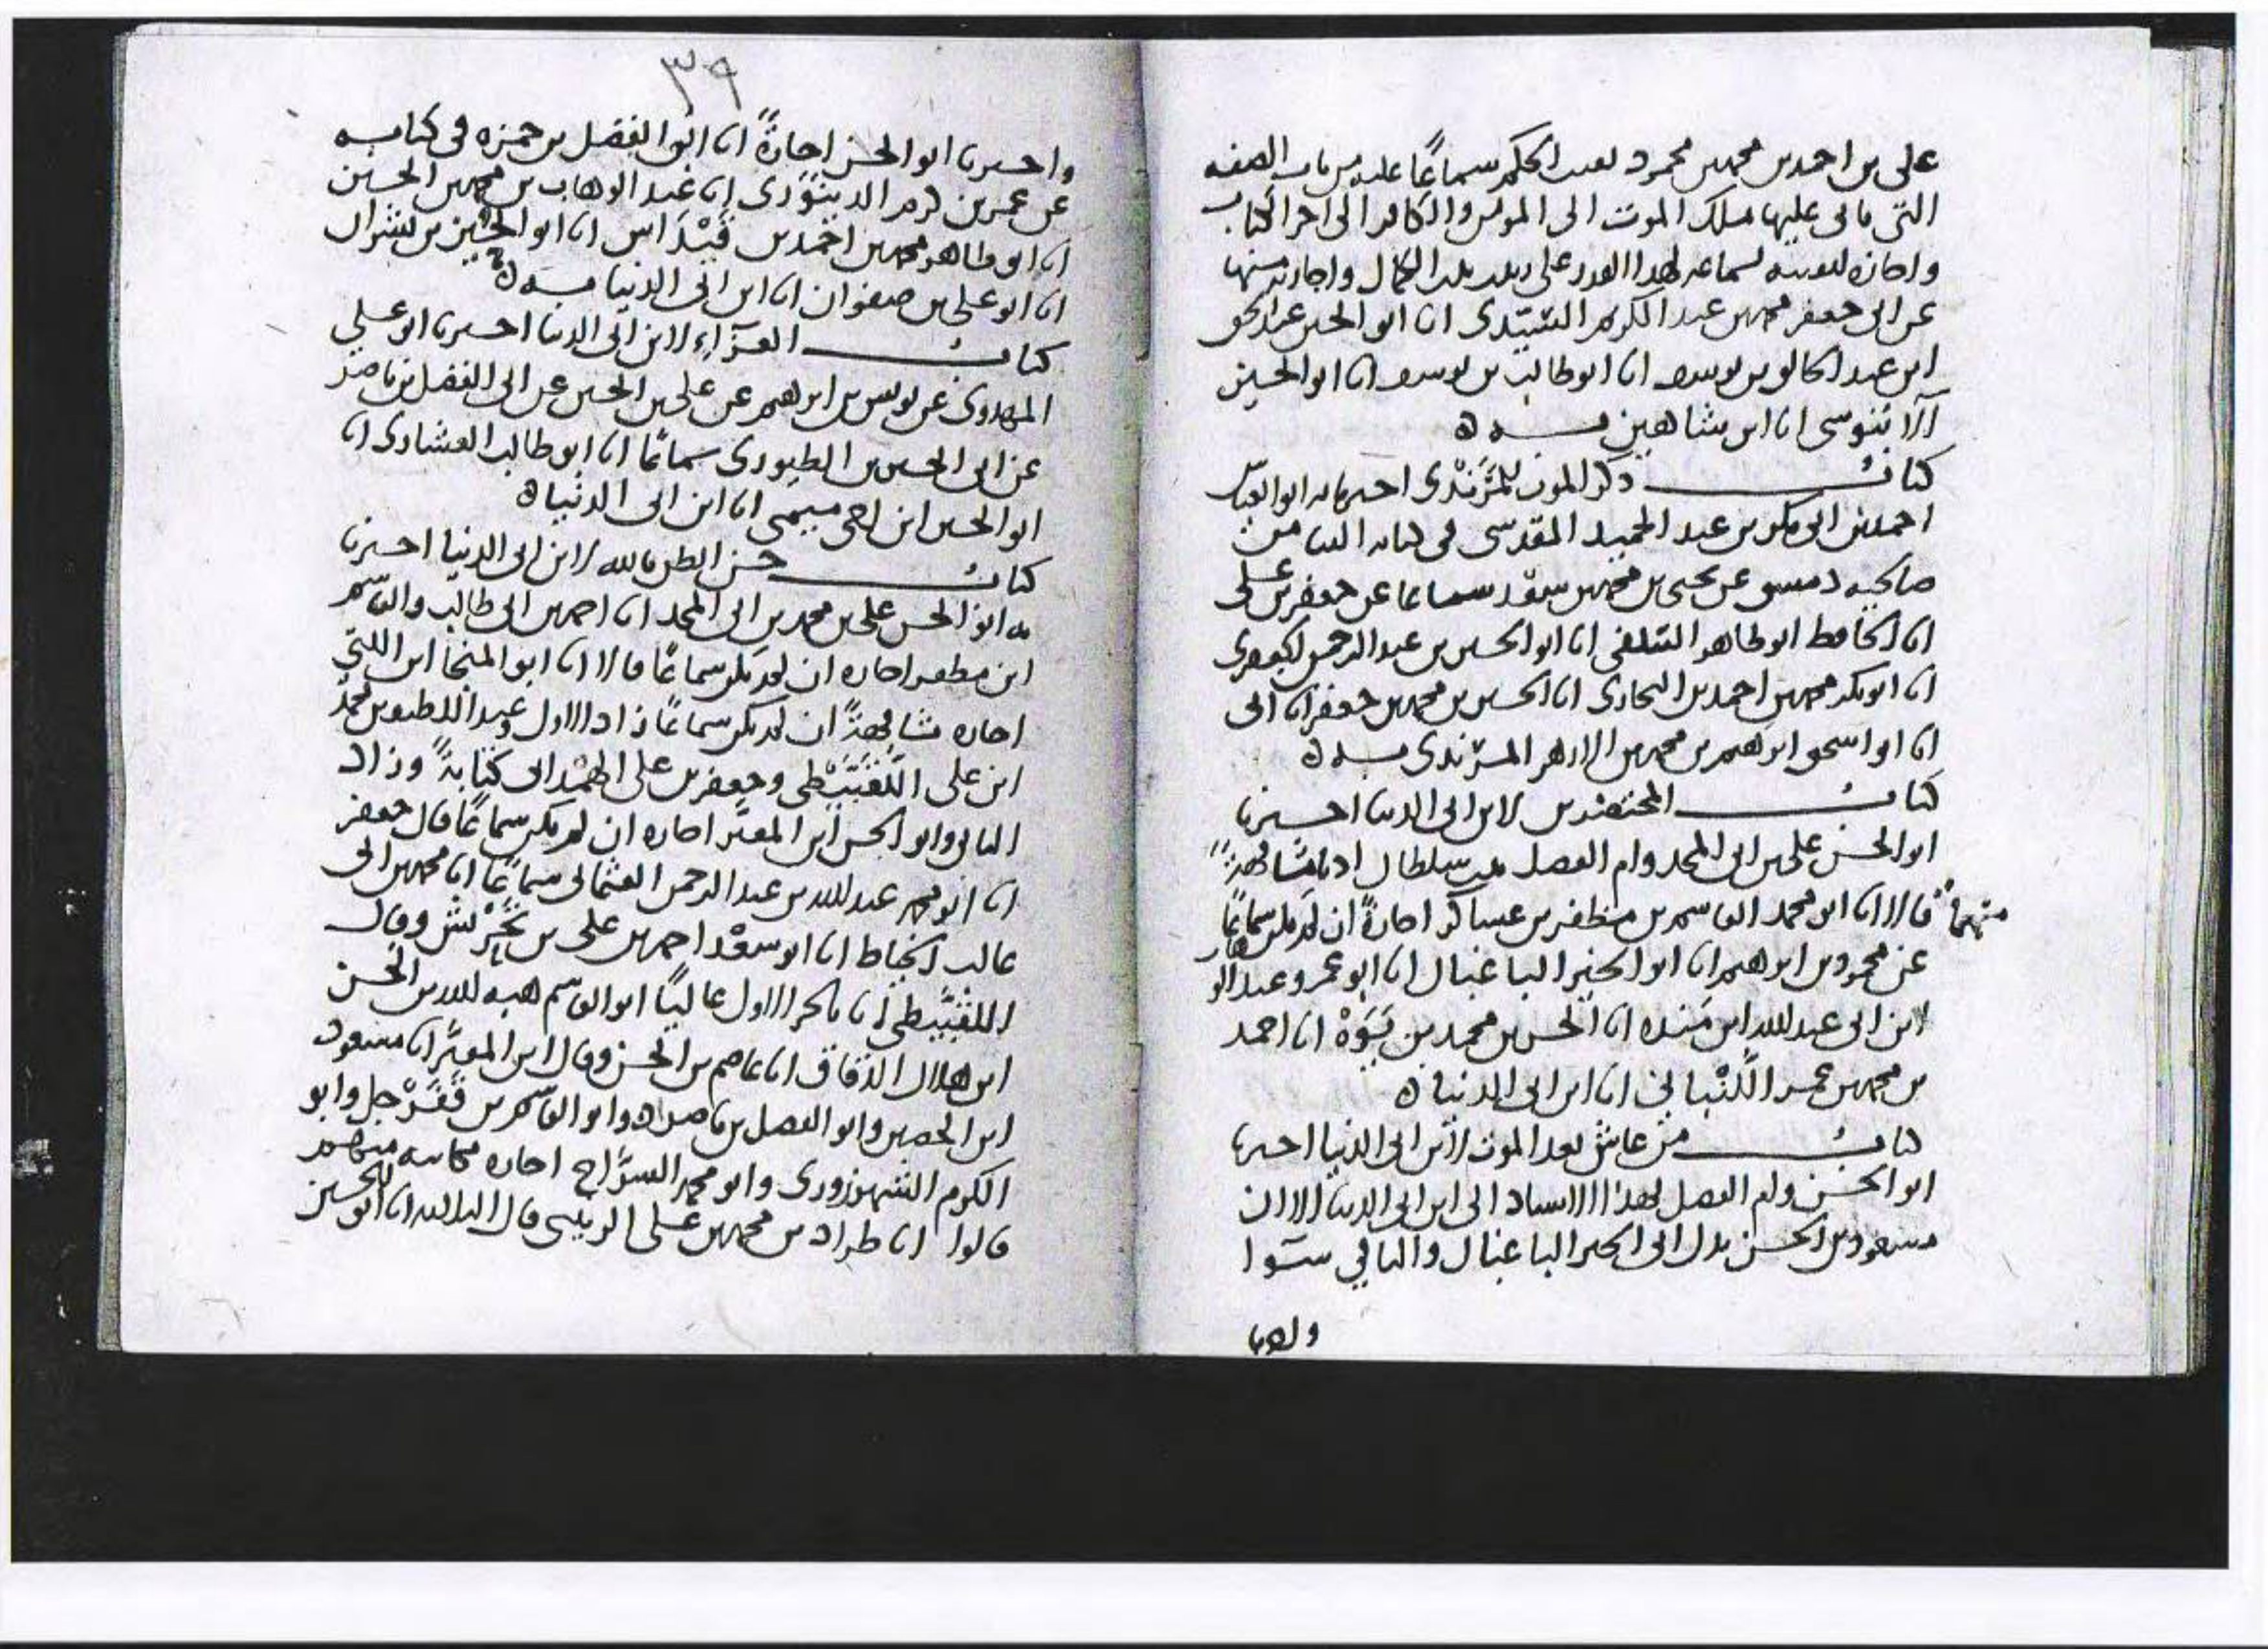 علي بن احمد بن محمد بن محمود بعبد الحكم سماعا عليه من باب الصفه
التي ياتي عليها ملك الموت الى المومن والكافر الى اخر الكتاب
واجازه لبقيته لهذا القدر على واجازه منها
عن ابي جعفر محمد بن عبد الكريم السيدى انا ابو الحسين عبد الحق
ابن عبد الخالق بن يوسف انا ابو طالب بن يوسف انا ابو الحسين
الابنوسى انا ابن شاهين به ه
كتاب ذكر الموت للمرندى اخبرنا به ابو العباس
احمد بن ابي بكر بن عبد الحميد المقدسى فى كتابه الينا من
صالحيه دمشق عن يحيى بن محمد بن سعد سماعا عن جعفر بن على
انا الحافظ ابو طاهر السلفى انا ابو الحسين بن عبد الرحمن
انا ابو بكر محمد بن احمد بن البخارى انا الحسين بن محمد بن جعفر انا ابى
انا ابو اسحق ابرهيم بن محمد بن الازهر المرندى به ه
كتاب المحتضرين لابن ابى الدنيا اخبرنا
ابو الحسن على بن ابى المجد وام الفضل بنت سلطان اذنا مشافهة
منهما قالا انا ابو محمد القاسم بن مظفر بن عساكر اجازة ان لم يكن سماعا
عن محمود بن ابرهيم انا ابو الخير الباغبان انا ابو عمرو عبد الو هاب
ابن ابى عبد الله ابن منده انا الحسن بن محمد بن يوه انا احمد
بن محمد بن عمر اللنبانى انا ابن ابى الدنيا ه
كتاب من عاش بعد الموت لابن ابى الدنيا اخبرنا
ابو الحسن وام الفضل بهذا الاسناد الى ابن ابى الدنيا الا ان
مسعود بن الحسن بدل ابى الخير الباغبان والباقي سوا
واخبرنا
٣٩
واخبرنا ابو الحسن اجازة انا ابو الفضل بن حمزه فى كتابه
عن عمر بن كرم الدينورى انا عبد الوهاب بن محمد بن الحسين
انا ابو طاهر محمد بن احمد بن قيداس انا ابو الحسين بن بشران
انا ابو على بن صفوان انا ابن ابى الدنيا به ه
كتاب العزاء لابن ابى الدنيا اخبرنا ابو على
المهدوى عن يونس بن ابرهيم عن على بن الحسين عن ابى الفضل بن ناصر
عن ابى الحسين بن الطيورى سماعا انا ابو طالب العشارى انا
ابو الحسين ابن اخى ميمى انا ابن ابى الدنيا ه
كتاب حسن الظن بالله لابن ابى الدنيا اخبرنا
به ابو الحسن على بن محمد بن ابى المجد انا احمد بن ابى طالب والقاسم
ابن مظفر اجازه ان لم يكن سماعا قالا انا ابو المنجا ابن اللتى
اجازه مشافهة ان لم يكن سماعا زاد الاول وعبد اللطيف بن محمد
ابن على القبيطى وجعفر بن على الهمدانى كتابة وزاد
الثانى وابو الحسن ابن المقير اجازه ان لم يكن سماعا قال جعفر
انا ابو محمد عبد الله بن عبد الرحمن العثمانى سماعا انا محمد بن ابى
غالب الخياط انا ابو سعد احمد بن على بن تحريش وقال
القبيطى انا بالجز الاول عاليا ابو القاسم هبه الله بن الحسن
ابن هلال الدقاق انا عاصم بن الحسن وقال ابن المقير انا مسعود
ابن الحصين وابو الفضل بن ناصر وابو القاسم بن قفرجل وابو
الكرم الشهرزورى وابو محمد السراج اجازه مكاتبه منهم
قالوا انا طراد بن محمد بن على الزينبى قال الثلاثه انا ابو الحسين